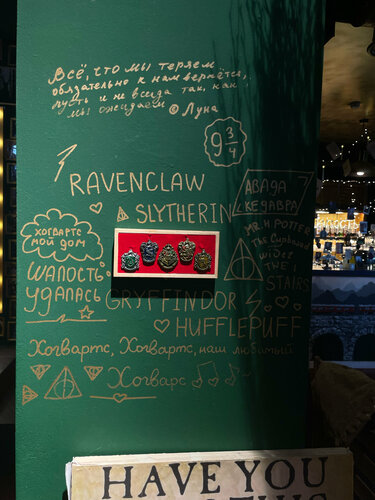 Всё, что мы теряем,
обязательно к нам вернётся,
пусть и не всегда так, как
мы ожидаем © Луна
9 3/4
RAVENCLAW
SLYTHERIN
АВАДА
КЕДАВРА
ХОГВАРТС
МОЙ ДОМ
MR. H POTTER
The Cupboard
under
THE
STAIRS
ШАЛОСТЬ
УДАЛАСЬ
GRYFFINDOR
HUFFLEPUFF
Хогвартс, Хогвартс, наш любимый
Хогварс
HAVE YOU